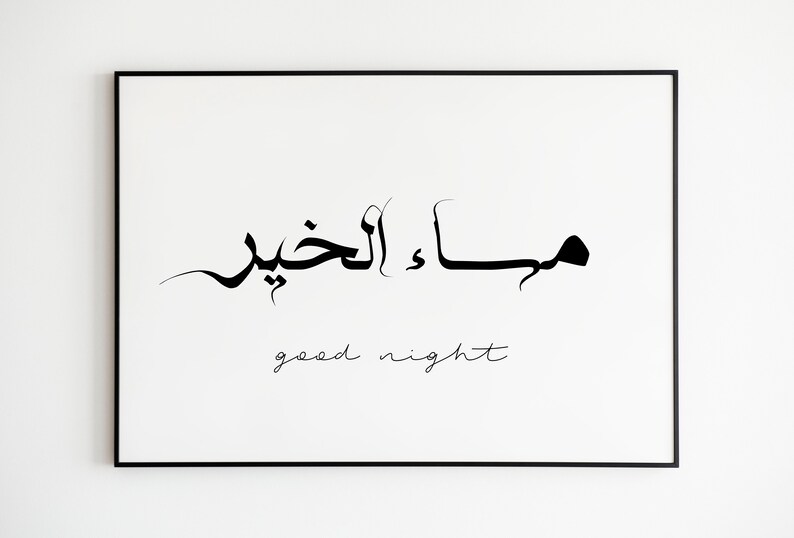 مساء الخير
good night